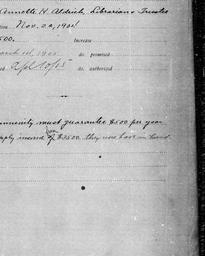 Annette H. Aldrich, Librarian & Trustee
Nov. 22, 1904
500. Increase
March 1st, 1905 do. promised
Apl 10/05 do. authorized
community must guarantee $500 per year
supply instead of $3500. they now have in hand